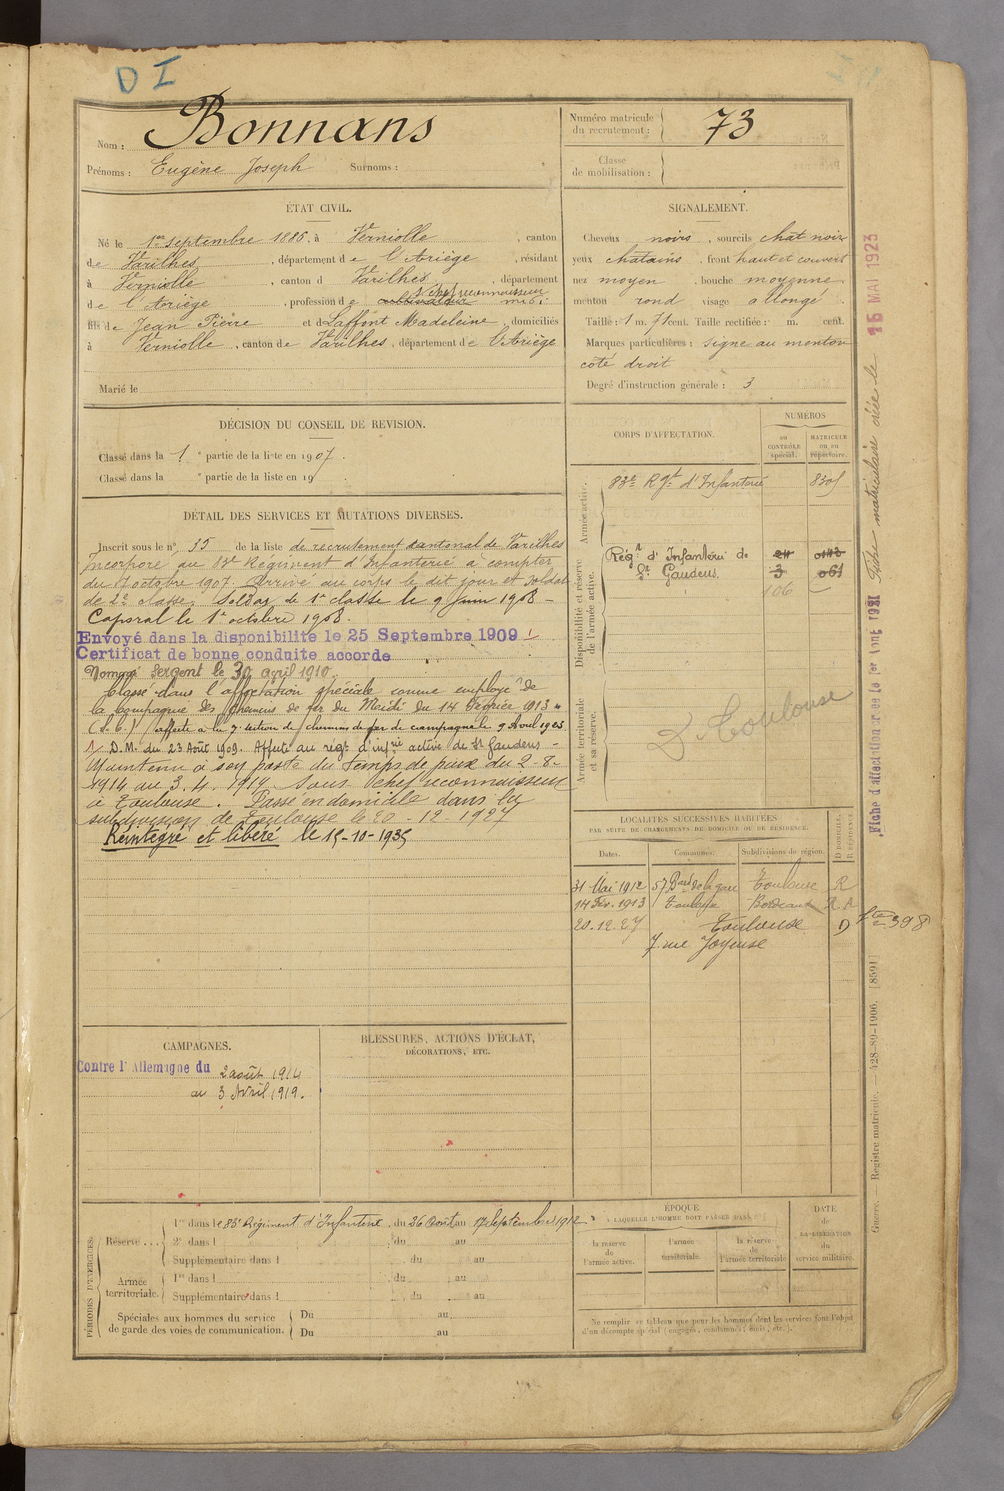 D I
Nom : Bonnans
Prénoms : Eugène Joseph Surnoms :
Numéro matricule du recrutement : 73
Classe de mobilisation :
ÉTAT CIVIL.
Né le 1er septembre 1886, à Verniolle, canton
de Varilhes, département de l'Ariège, résidant
à Verniolle, canton d Varilhes, département
s/chef reconnaisseur
de l'Ariège, profession de cultivateur midi
fils de Jean Pierre et de Laffont Madeleine, domiciliés
à Verniolle, canton de Varilhes, département de l'Ariège
Marié le
SIGNALEMENT.
Cheveux noirs, sourcils chat noir
yeux chatains, front haut et couvert
nez moyen, bouche moyenne
menton rond visage allongé
Taille : 1 m. 71 cent. Taille rectifiée : m. cent.
Marques particulières : signe au menton
côté droit
Degré d'instruction générale : 3
DÉCISION DU CONSEIL DE REVISION.
Classé dans la 1e partie de la liste en 1907.
Classé dans la e partie de la liste en 19 .
DÉTAIL DES SERVICES ET MUTATIONS DIVERSES.
Inscrit sous le n° 35 de la liste de recrutement cantonal de Varilhes
Incorporé au 83e Régiment d'Infanterie à compter
du 7 octobre 1907. Arrivé au corps le dit jour et soldat
de 2e classe. Soldat de 1e classe le 9 Juin 1908 –
Caporal le 1er octobre 1908.
Envoyé dans la disponibilité le 25 Septembre 1909 !
Certificat de bonne conduite accorde
Nommé Sergent le 30 avril 1910
Classé dans l'affectation spéciale comme employé de
la Compagnie des chemins de fer du Midi du 14 Février 1913
(S.C.) affecté à la 7e section de chemins de fer de campagne le 9 Avril 1923
1/ D.M. du 23 Août 1909. Affecté au régt d'infrie active de St Gaudens –
Maintenu à son poste du temps de paix du 2-8-
1914 au 3.4.1919. Sous chef reconnaisseur
à Toulouse. Passé en domicile dans la
subdivision de Toulouse le 20-12-1927
Réintégré et libéré le 15-10-1935
CORPS D'AFFECTATION.
NUMÉROS
au contrôle spécial.
matricule ou au répertoire.
Armée active.
83e Rgt d'Infanterie
Disponibilité et réserve de l'armée active.
Régt d'Infanterie de 24 0143
St Gaudens 3 061
106
Armée territoriale et sa réserve.
D Toulouse
LOCALITÉS SUCCESSIVES HABITÉES
PAR SUITE DE CHANGEMENTS DE DOMICILE OU DE RÉSIDENCE.
Dates. Communes. Subdivisions de région. D DOMICILE. R RÉSIDENCE.
31 Mai 1912 57 Bard de la gare Toulouse R
14 Fév. 1913 Toulouse Bordeaux R
20.12.27 Toulouse D
7 rue Joyeuse
CAMPAGNES.
Contre l'Allemagne du 2 août 1914
au 3 Avril 1919.
BLESSURES, ACTIONS D'ÉCLAT,
DÉCORATIONS, ETC.
PÉRIODES D'EXERCICES.
Réserve...
1re dans le 83e Régiment d'Infanterie, du 26 Août au 17 Septembre 1912
2e dans l du au
Supplémentaire dans l du au
Armée territoriale.
1re dans l du au
Supplémentaire dans l du au
Spéciales aux hommes du service
de garde des voies de communication.
Du au
Du au
ÉPOQUE
À LAQUELLE L'HOMME DOIT PASSER DANS
la réserve de l'armée active.
l'armée territoriale.
la réserve de l'armée territoriale
DATE de LA LIBÉRATION du service militaire.
Ne remplir ce tableau que pour les hommes dont les services font l'objet
d'un décompte spécial (engagés, condamnés, omis, etc.).
Fiche matriculaire créée le 15 MAI 1923
Fiche d'affectation créée le 1er Août 1931
Guerre. — Registre matricule. — 428-89-1906. [8591]